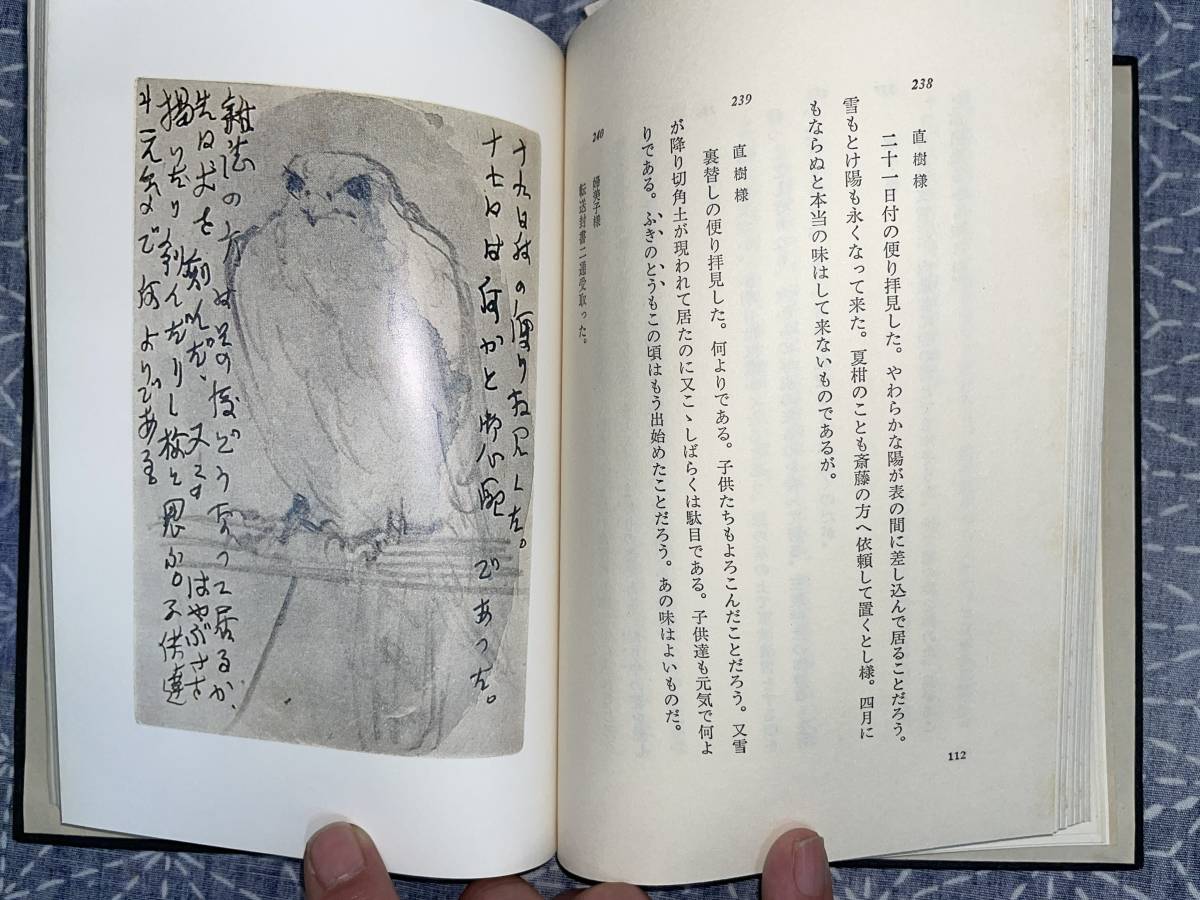 238
直樹様
二十一日付の便り拝見した。やわらかな陽が表の間に差し込んで居ることだろう。
雪もとけ陽も永くなって来た。夏柑のことも斎藤の方へ依頼して置くとし様。四月に
もならぬと本当の味はして来ないものであるが。
239
直樹様
裏替しの便り拝見した。何よりである。子供たちもよろこんだことだろう。又雪
が降り切角土が現われて居たのに又こゝしばらくは駄目である。子供達も元気で何よ
りである。ふきのとうもこの頃はもう出始めたことだろう。あの味はよいものだ。
240
婦美子様
転送封書二通受取った。
112
十九日付の便り拝見した。
十七日は何かと御心配であった。
雑誌の方は其の後どうなって居るか、
先日 を刻んだ、又 はやぶさを
描いたり刻んだりし様と思ふ。子供達
も元気で何よりである